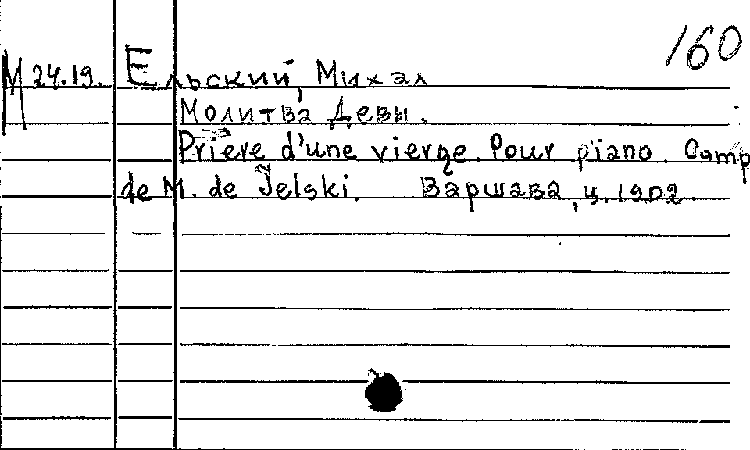 160
М 24.19. Ельский, Михал
Молитва Девы.
Prière d'une vierge. Pour piano. Comp
de M. de Jelski. Варшава, ц. 1902